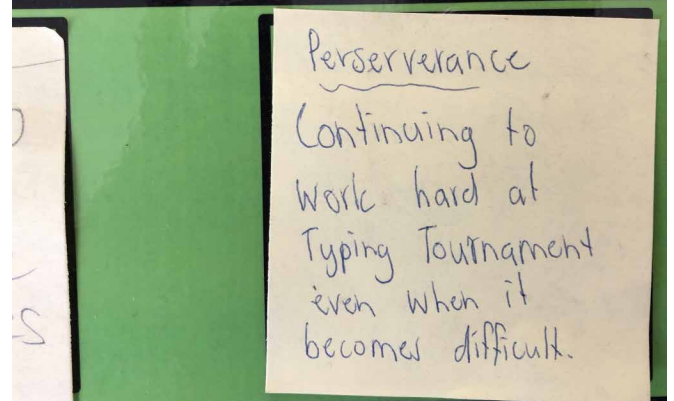 Perserverance
Continuing to
work hard at
Typing Tournament
even when it
becomes difficult.